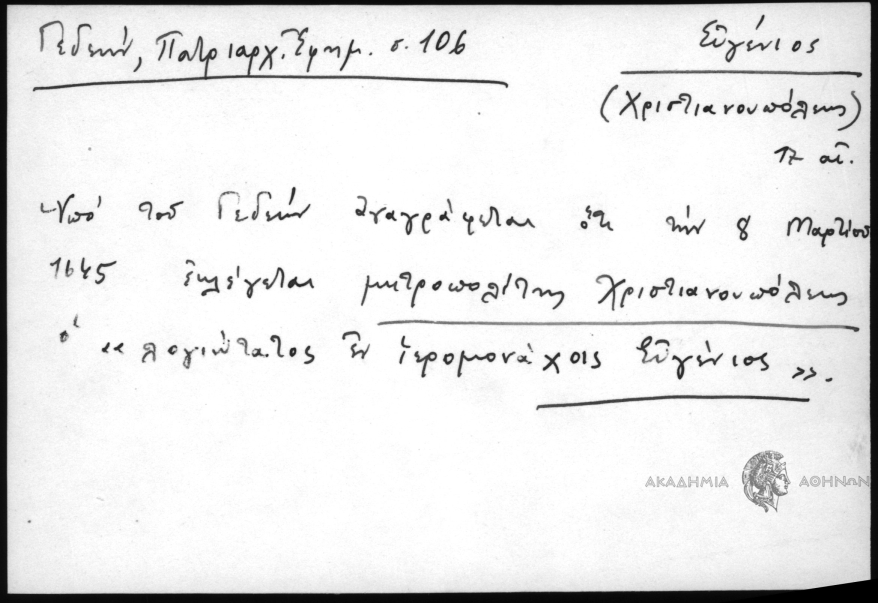 Γεδεών, Πατριαρχ. Ἐφημ. σ. 106
Εὐγένιος
(Χριστιανουπόλεως)
17 αἰ.
Ὑπό τοῦ Γεδεών ἀναγράφεται ὅτι τήν 8 Μαρτίου
1645 ἐκλέγεται μητροπολίτης Χριστιανουπόλεως
ὁ «λογιώτατος ἐν ἱερομονάχοις Εὐγένιος».
ΑΚΑΔΗΜΙΑ ΑΘΗΝΩΝ